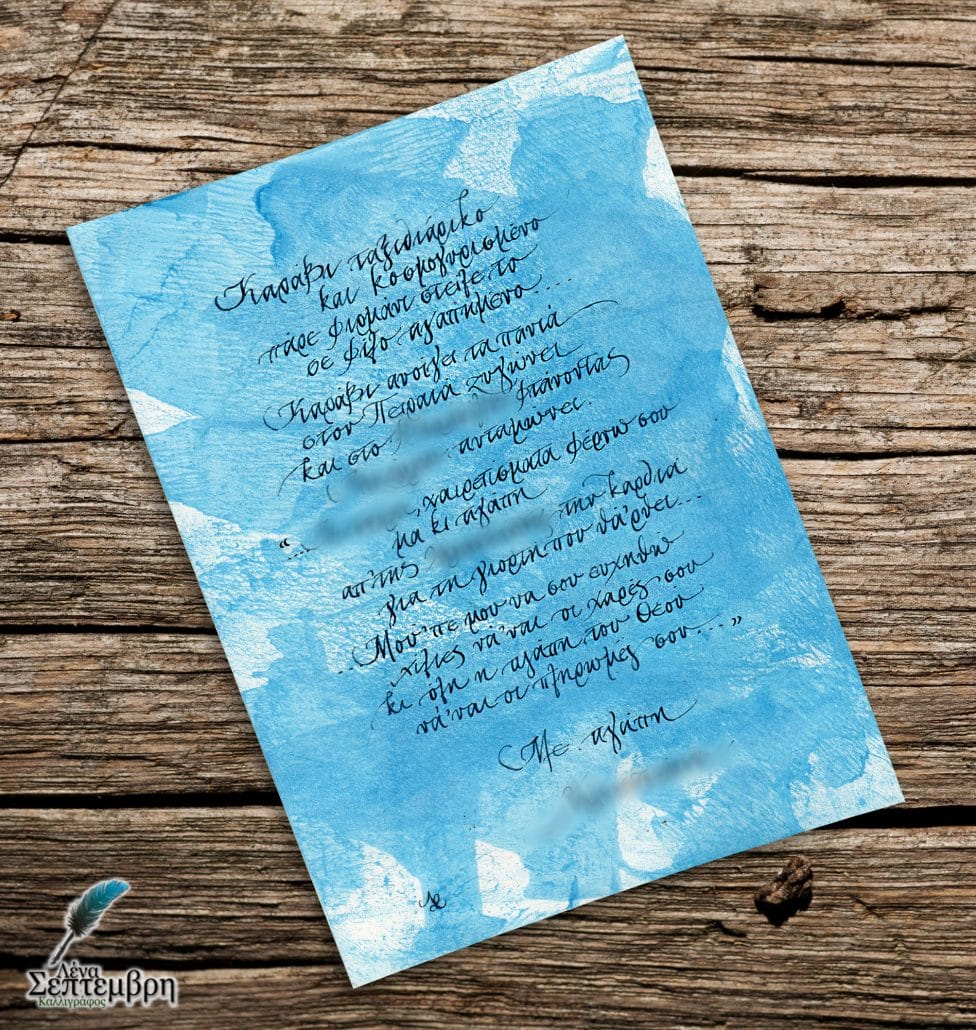 Καράβι ταξιδιάρικο
και κοσμογυρισμένο
πάρε φιρμάνι στείλε το
σε φίλο αγαπημένο....
Καράβι ανοίγει τα πανιά
στον Πειραιά ζυγώνει
και στο φτάνοντας
ανταμώνει.
"... , χαιρετίσματα φέρνω σου
μα κι αγάπη
απ'της την καρδιά
για τη γιορτή που θα'ρθει...
..Μου'πε μου να σου ευχηθώ
χίλιες νά'ναι οι χαρές σου
κι όλη η αγάπη του Θεού
νά'ναι οι πληρωμές σου..."
Με αγάπη
Λένα
Σεπτεμβρη
Καλλιγράφος